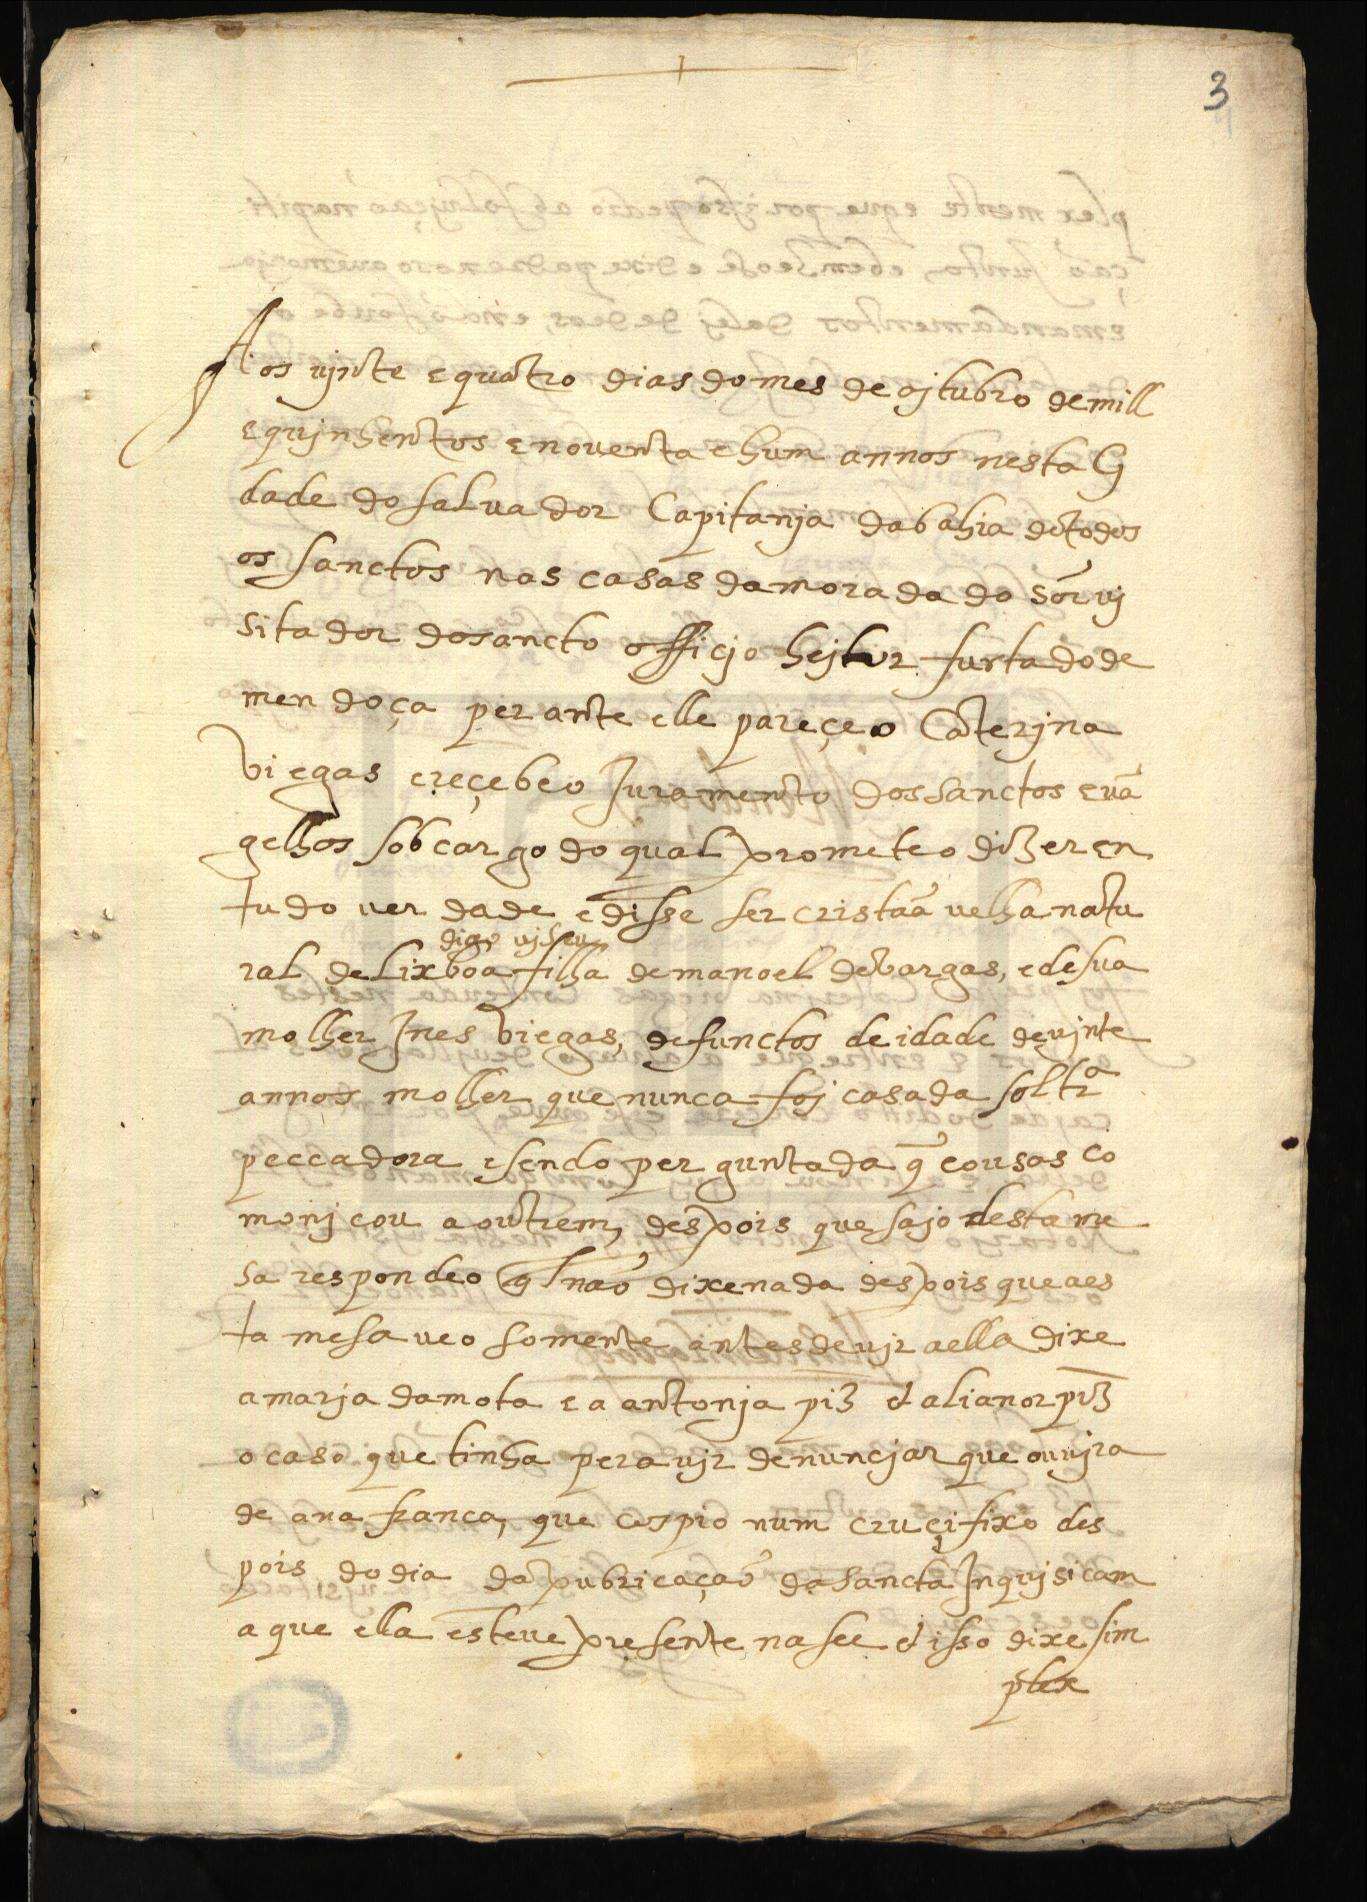 3
Aos vjnte e quatro dias do mes de ojtubro de mill
e qujnhentos e noventa e hum annos nesta Ci
dade do salvador Capitanja da bahia de todos
os sanctos nas casas da morada do sõr vi
sitador do sancto officjo hejtor furtado de
mendoça perante elle pareçeo Caterjna
viegas e reçebeo Juramento dos sanctos evã
gelhos sob cargo do qual prometeo dizer en
tudo verdade e disse ser cristaã velha natu
digo vjseu
ral de Lixboa filha de manoel de vargas, e de sua
molher Jnes viegas, defunctos de idade de vinte
annos molher que nunca foj casada soltrª
peccadora e sendo perguntada q̃ cousas co
monjcou a outrem, despois que sajo desta me
sa respondeo q̃ naõ dixe nada despois que a es
ta mesa veo somente antes de vjr a ella dixe
a marja da mota e a antonja piz̃ e a lianor piz̃
o caso que tinha pera vjr denuncjar que ouvjra
de ana franca, que cospio num cruçifixo des
pois do dia da pubricaçaõ da sancta Inqujsicam
a que ella esteve presente na see e isso dixe sim
plex